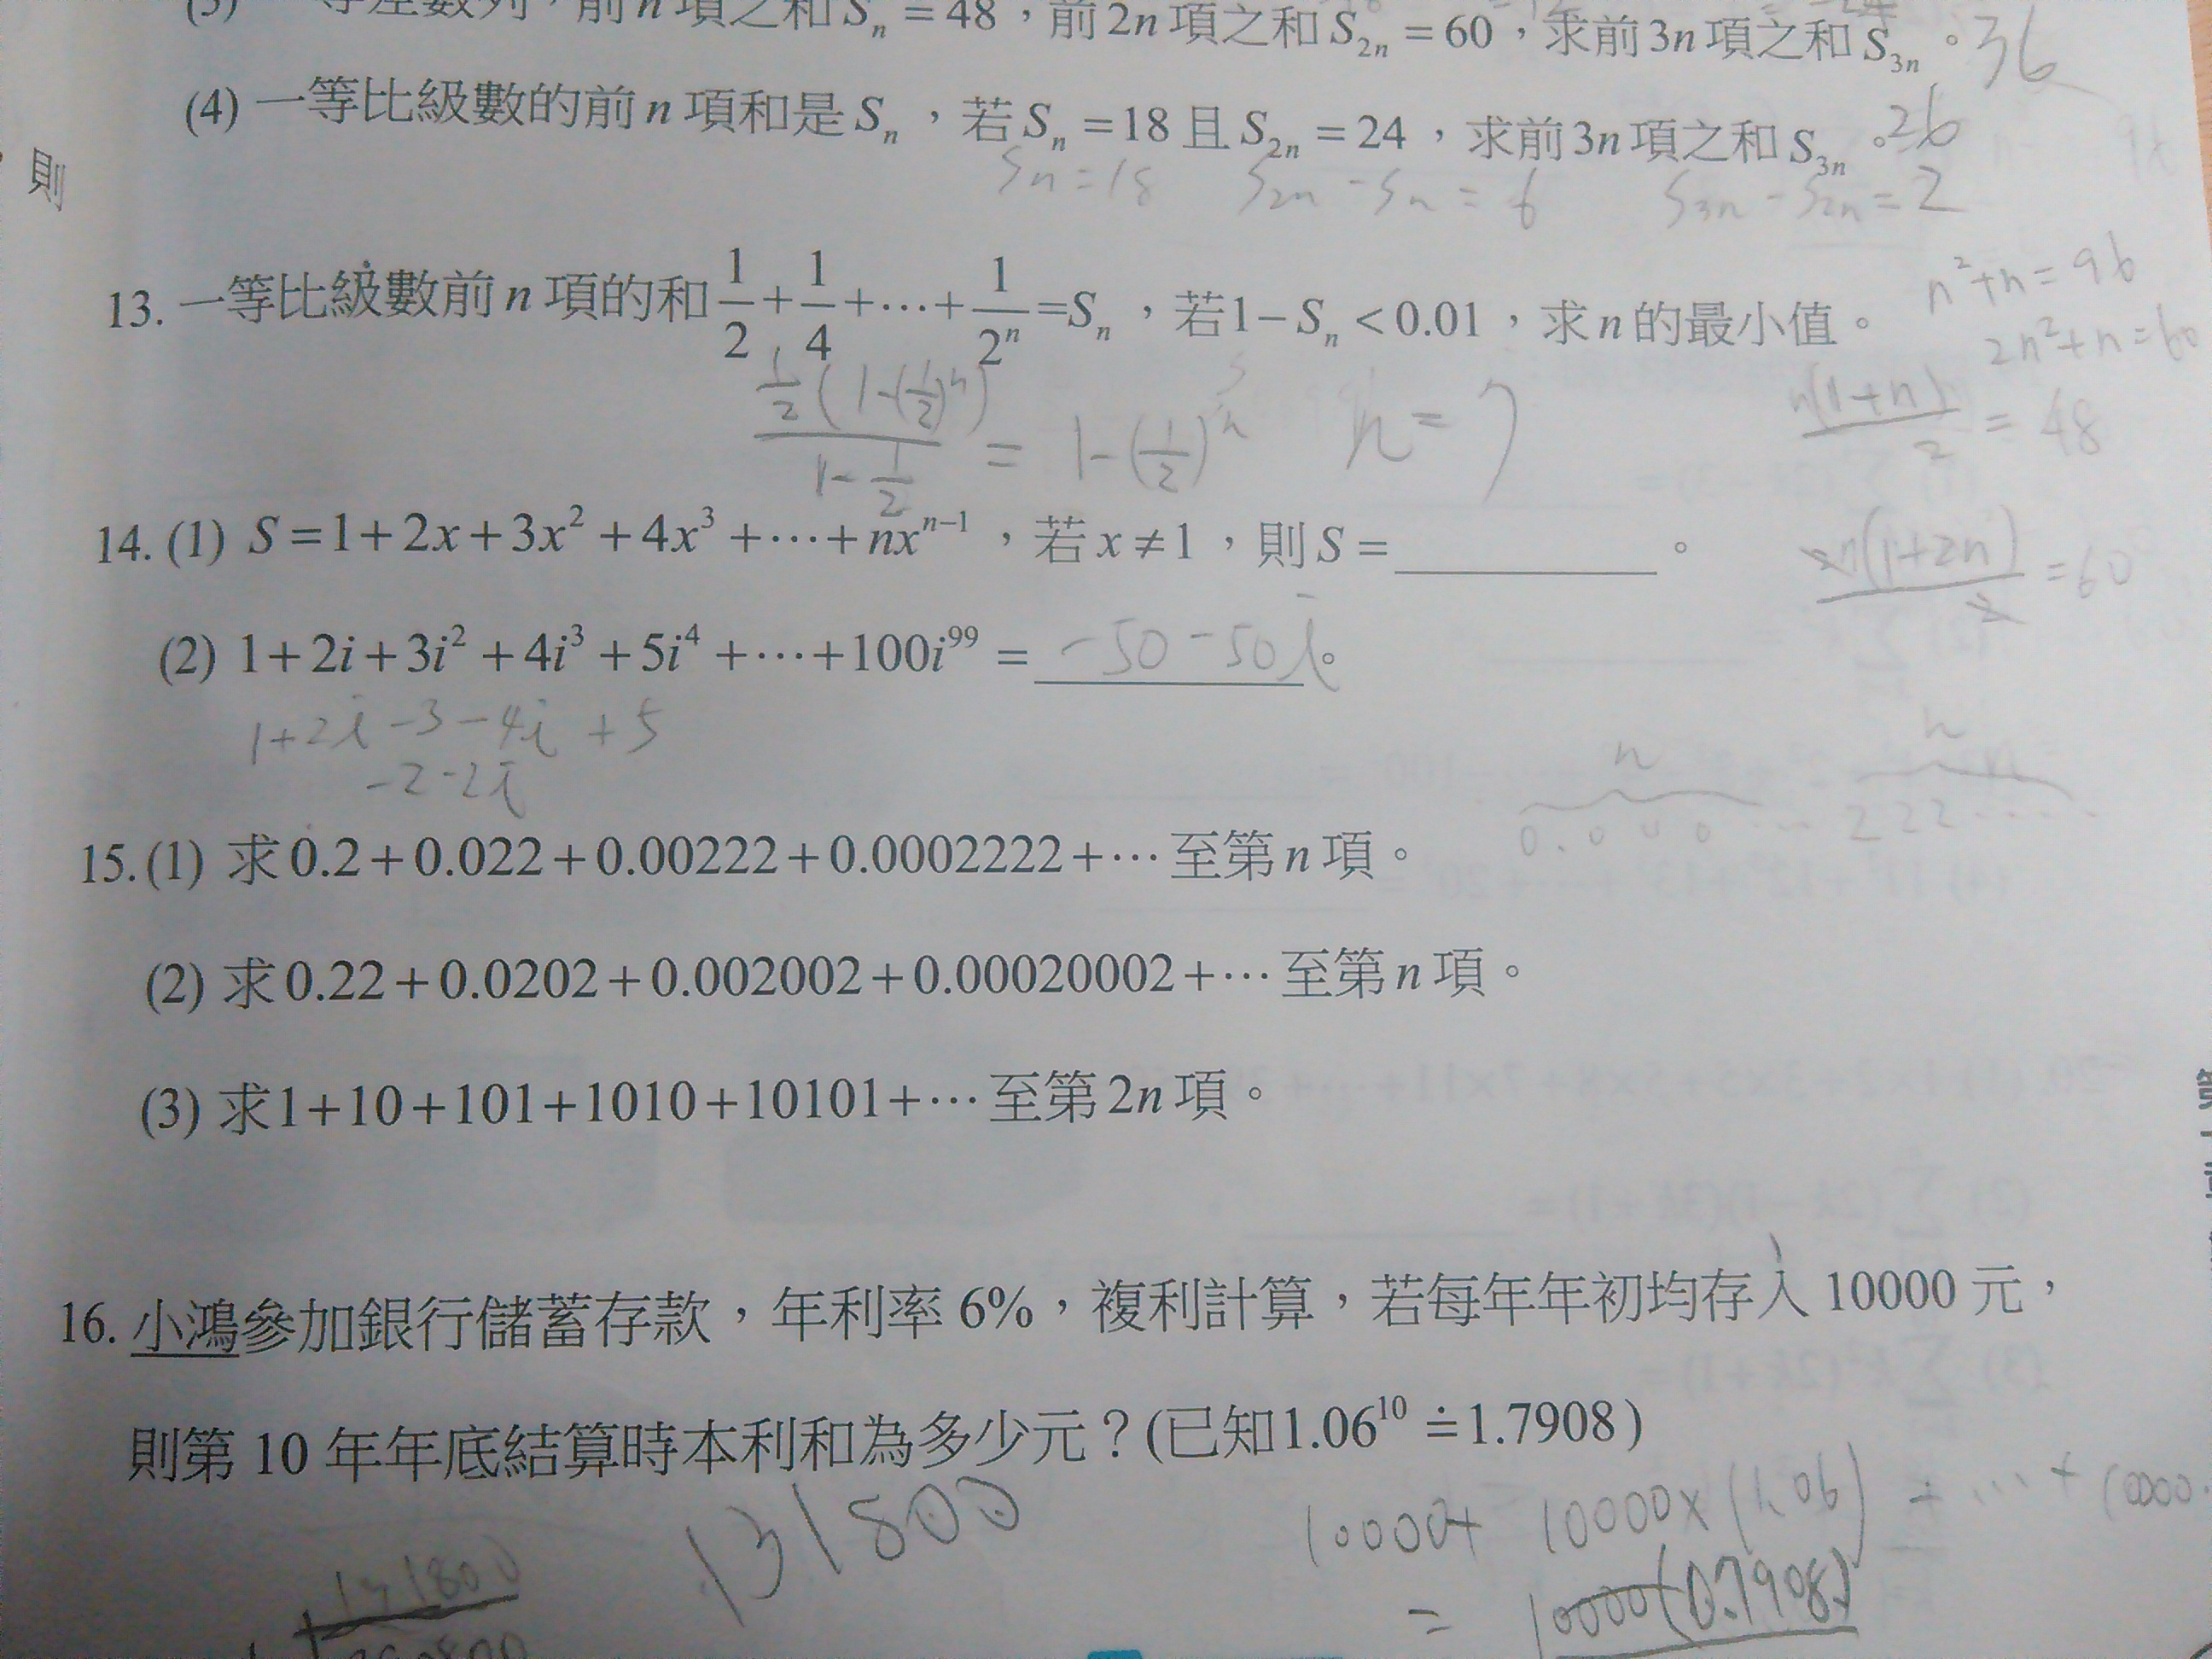 等差數列,前n項之和Sₙ=48,前2n項之和S₂ₙ=60,求前3n項之和S₃ₙ。36
(4) 一等比級數的前n項和是Sₙ,若Sₙ=18且S₂ₙ=24,求前3n項之和S₃ₙ。26
則
Sn=18 S2n-Sn=6 S3n-S2n=2
13. 一等比級數前n項的和1/2+1/4+⋯+1/2ⁿ=Sₙ,若1-Sₙ<0.01,求n的最小值。
n²+n=96
2n²+n=60
(1/2(1-(1/2)ⁿ))/(1-1/2) = 1-(1/2)ⁿ n=7
n(1+n)/2=48
14. (1) S=1+2x+3x²+4x³+⋯+nxⁿ⁻¹,若x≠1,則S=________。
n(1+2n)/2=60
(2) 1+2i+3i²+4i³+5i⁴+⋯+100i⁹⁹=-50-50i。
1+2i-3-4i+5
-2-2i
n n
0.000⋯ 222⋯
15. (1) 求0.2+0.022+0.00222+0.0002222+⋯至第n項。
(2) 求0.22+0.0202+0.002002+0.00020002+⋯至第n項。
(3) 求1+10+101+1010+10101+⋯至第2n項。
16. 小鴻參加銀行儲蓄存款,年利率6%,複利計算,若每年年初均存入10000元,
則第10年年底結算時本利和為多少元?(已知1.06¹⁰≐1.7908)
131800
10000+10000×(1.06)+⋯+10000
=10000(0.7908)
131800